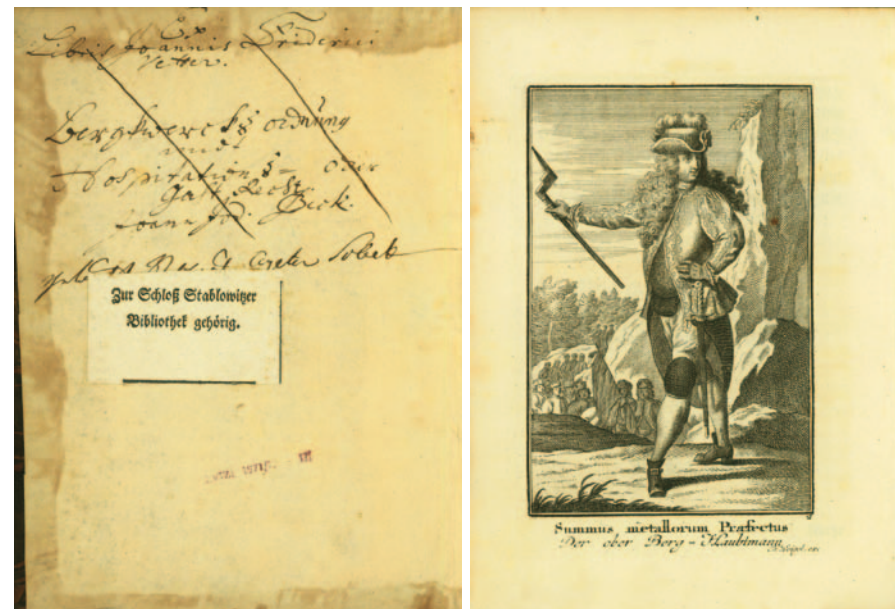 Ex
Libris Joannis Friderici
Bergkwercks ordnung
und
Hospitations- oder
Gast Recht
Joann Jod. Beck.
Zur Schloß Stablowitzer
Bibliothek gehörig.
Summus metallorum Præfectus
Der ober Berg-Haubtmann